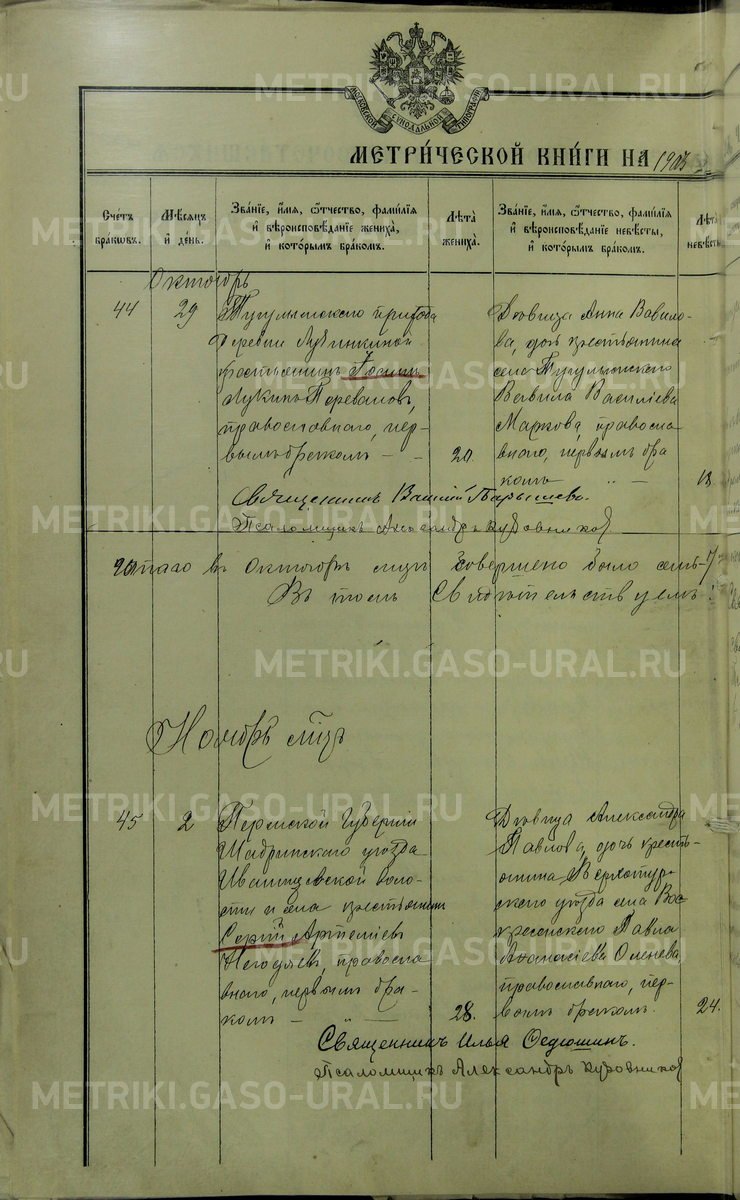 МОСКОВСКОЙ СѴНОДАЛЬНОЙ ТИПОГРАФІИ
МЕТРИ́ЧЕСКОЙ КНИ́ГИ НА 1903
Сче́тъ бра́кѡвъ.
Мѣ́сяцъ и҆ де́нь.
Зва́нїе, и҆́мѧ, ѻ҆́тчество, фами́лїѧ
и҆ вѣроисповѣ́данїе жениха̀,
и҆ кото́рымъ бра́комъ.
Лѣ́та жениха̀.
Зва́нїе, и҆́мѧ, ѻ҆́тчество, фами́лїѧ
и҆ вѣроисповѣ́данїе невѣ́сты,
и҆ кото́рымъ бра́комъ.
Лѣ́та невѣ́сты
Октябрь
44
29
Тугулымского прихода
деревни
крестьянинъ
Лукинъ
православнаго, пер-
вымъ бракомъ
20.
Дѣвица Анна Вавило-
ва, дочь крестьянина
села Тугулымскаго
Вавила Василіева
Маркова, правосла-
внаго, первымъ бра
комъ
18.
Священникъ Василій Барышевъ.
Псаломщикъ Александръ
Итаго въ Октябрѣ мцѣ совершено было семь 7
Въ томъ Свидѣтельствуемъ:
Ноябрь мцъ
45
2
Пермской губерніи
Шадринскаго уѣзда
Иванищевской воло-
сти и села крестьянинъ
Сергій Артеміевъ
православ
наго, первымъ бра-
комъ
28.
Дѣвица Александра
Павлова, дочь кресть-
янина Верхотур-
скаго уѣзда села Вос
кресенскаго Павла
Аѳанасіева Оленева,
православнаго, пер-
вымъ бракомъ.
24.
Священникъ Илья Ѳедюшинъ.
Псаломщикъ Александръ
METRIKI.GASO-URAL.RU